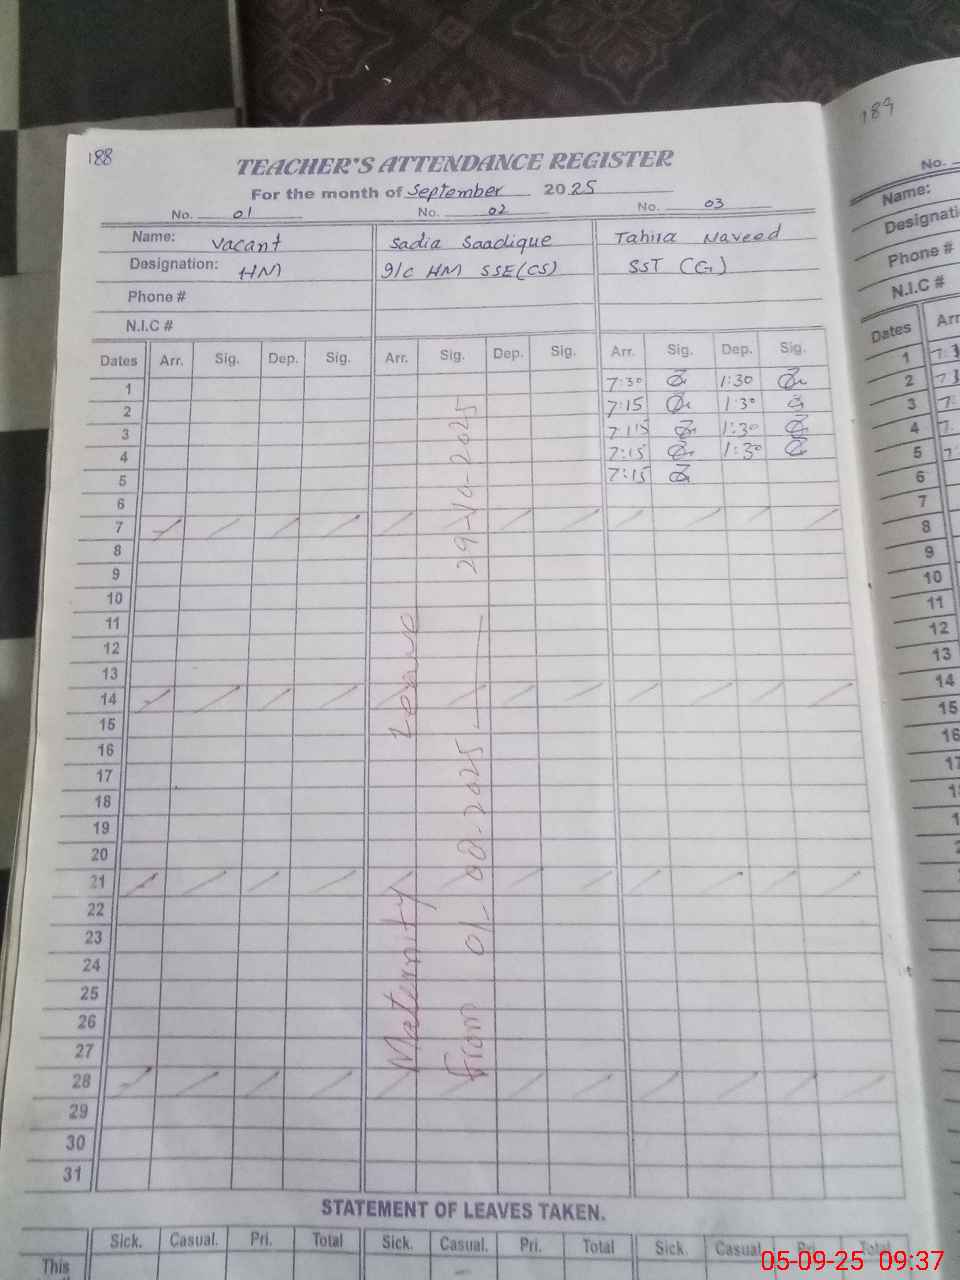 188
189
TEACHER'S ATTENDANCE REGISTER
For the month of September 2025
No. 01 No. 02 No. 03 No.
Name: Vacant Sadia Saadique Tahira Naveed Name:
Designation: HM I/C HM SSE(CS) SST (G) Designati
Phone # Phone #
N.I.C # N.I.C #
Dates Arr. Sig. Dep. Sig. Arr. Sig. Dep. Sig. Arr. Sig. Dep. Sig. Dates Arr
1 7:30 1:30 1
2 7:15 1:30 2
3 7:15 1:30 3
4 7:15 1:30 4
5 7:15 5
6 6
7 7
8 8
9 9
10 10
11 11
12 12
13 13
14 14
15 15
16 16
17 17
18
19
20
21
22
23
24
25
26
27
28
29
30
31
Maternity Leave
From 01-08-2025 — 29-10-2025
STATEMENT OF LEAVES TAKEN.
Sick. Casual. Pri. Total Sick. Casual. Pri. Total Sick. Casual Pri. Total
This
05-09-25 09:37